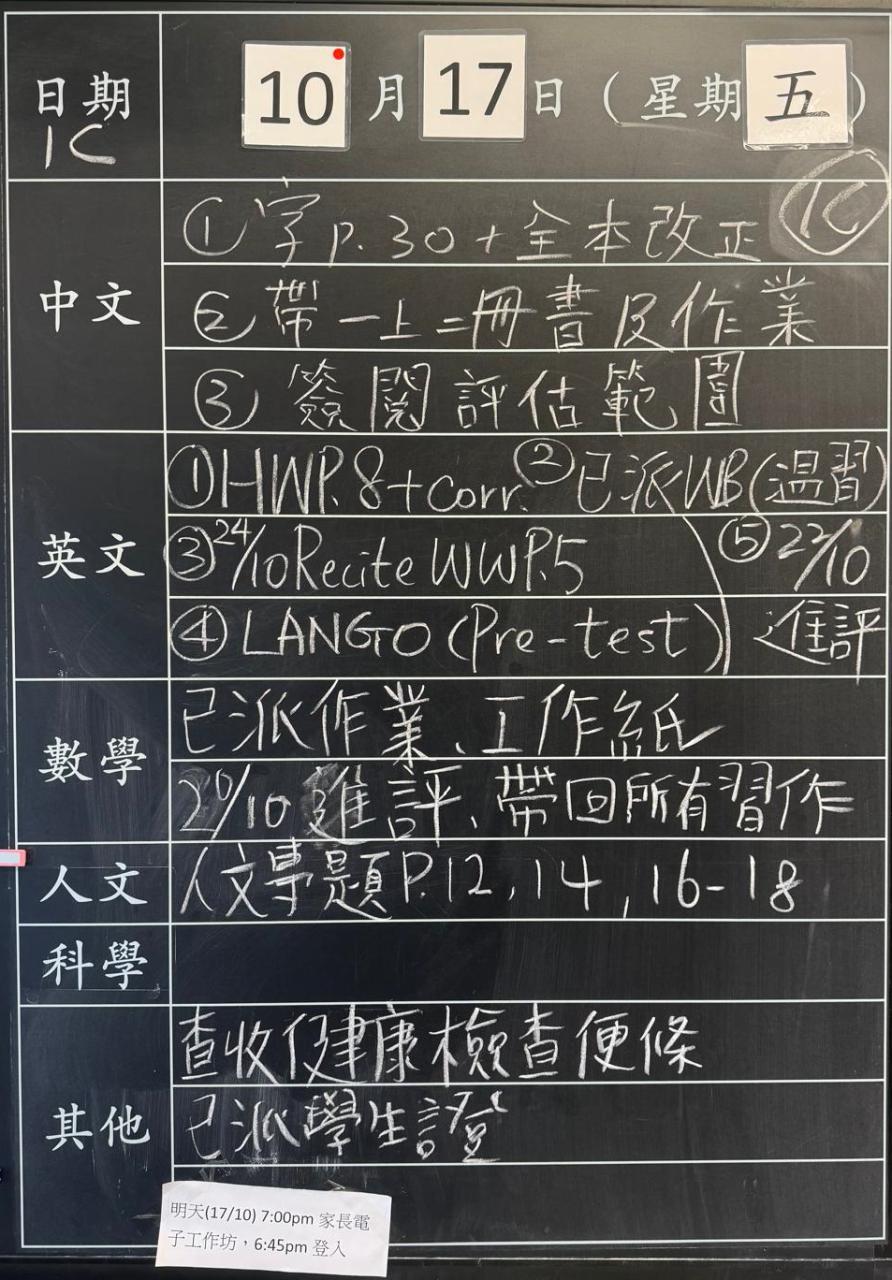 日期 10月17日(星期五)
1C
中文
①字P.30+全本改正 1C
②帶一上二冊書及作業
③簽閱評估範圍
英文
①HWP.8+corr. ②已派WB(温習)
③24/10 Recite WWP.5 ⑤22/10
④LANGO (Pre-test) 進評
數學
已派作業、工作紙
20/10進評、帶回所有習作
人文
人文專題P.12,14,16-18
科學
其他
查收健康檢查便條
已派學生證
明天(17/10) 7:00pm 家長電
子工作坊,6:45pm 登入